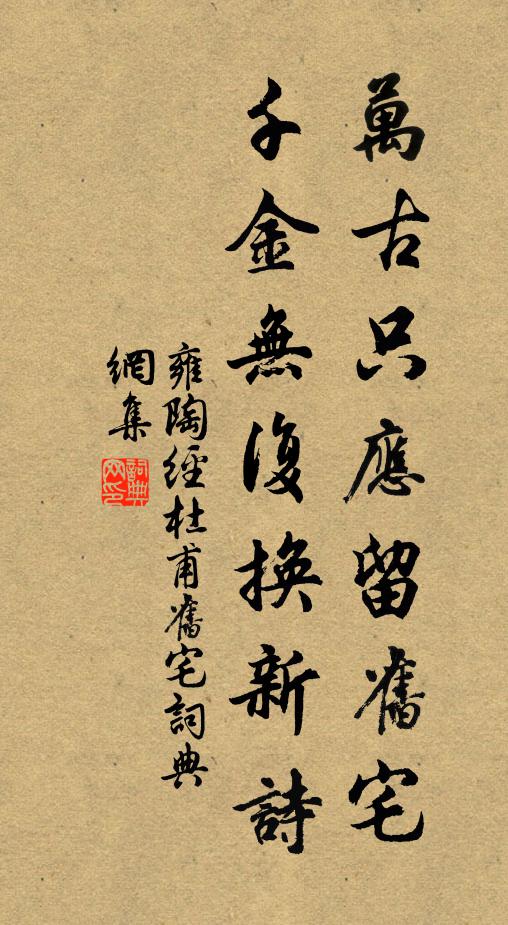 萬古只應留舊宅
千金無復換新詩
雍陶經杜甫舊宅詞典
網集
詞典
网印